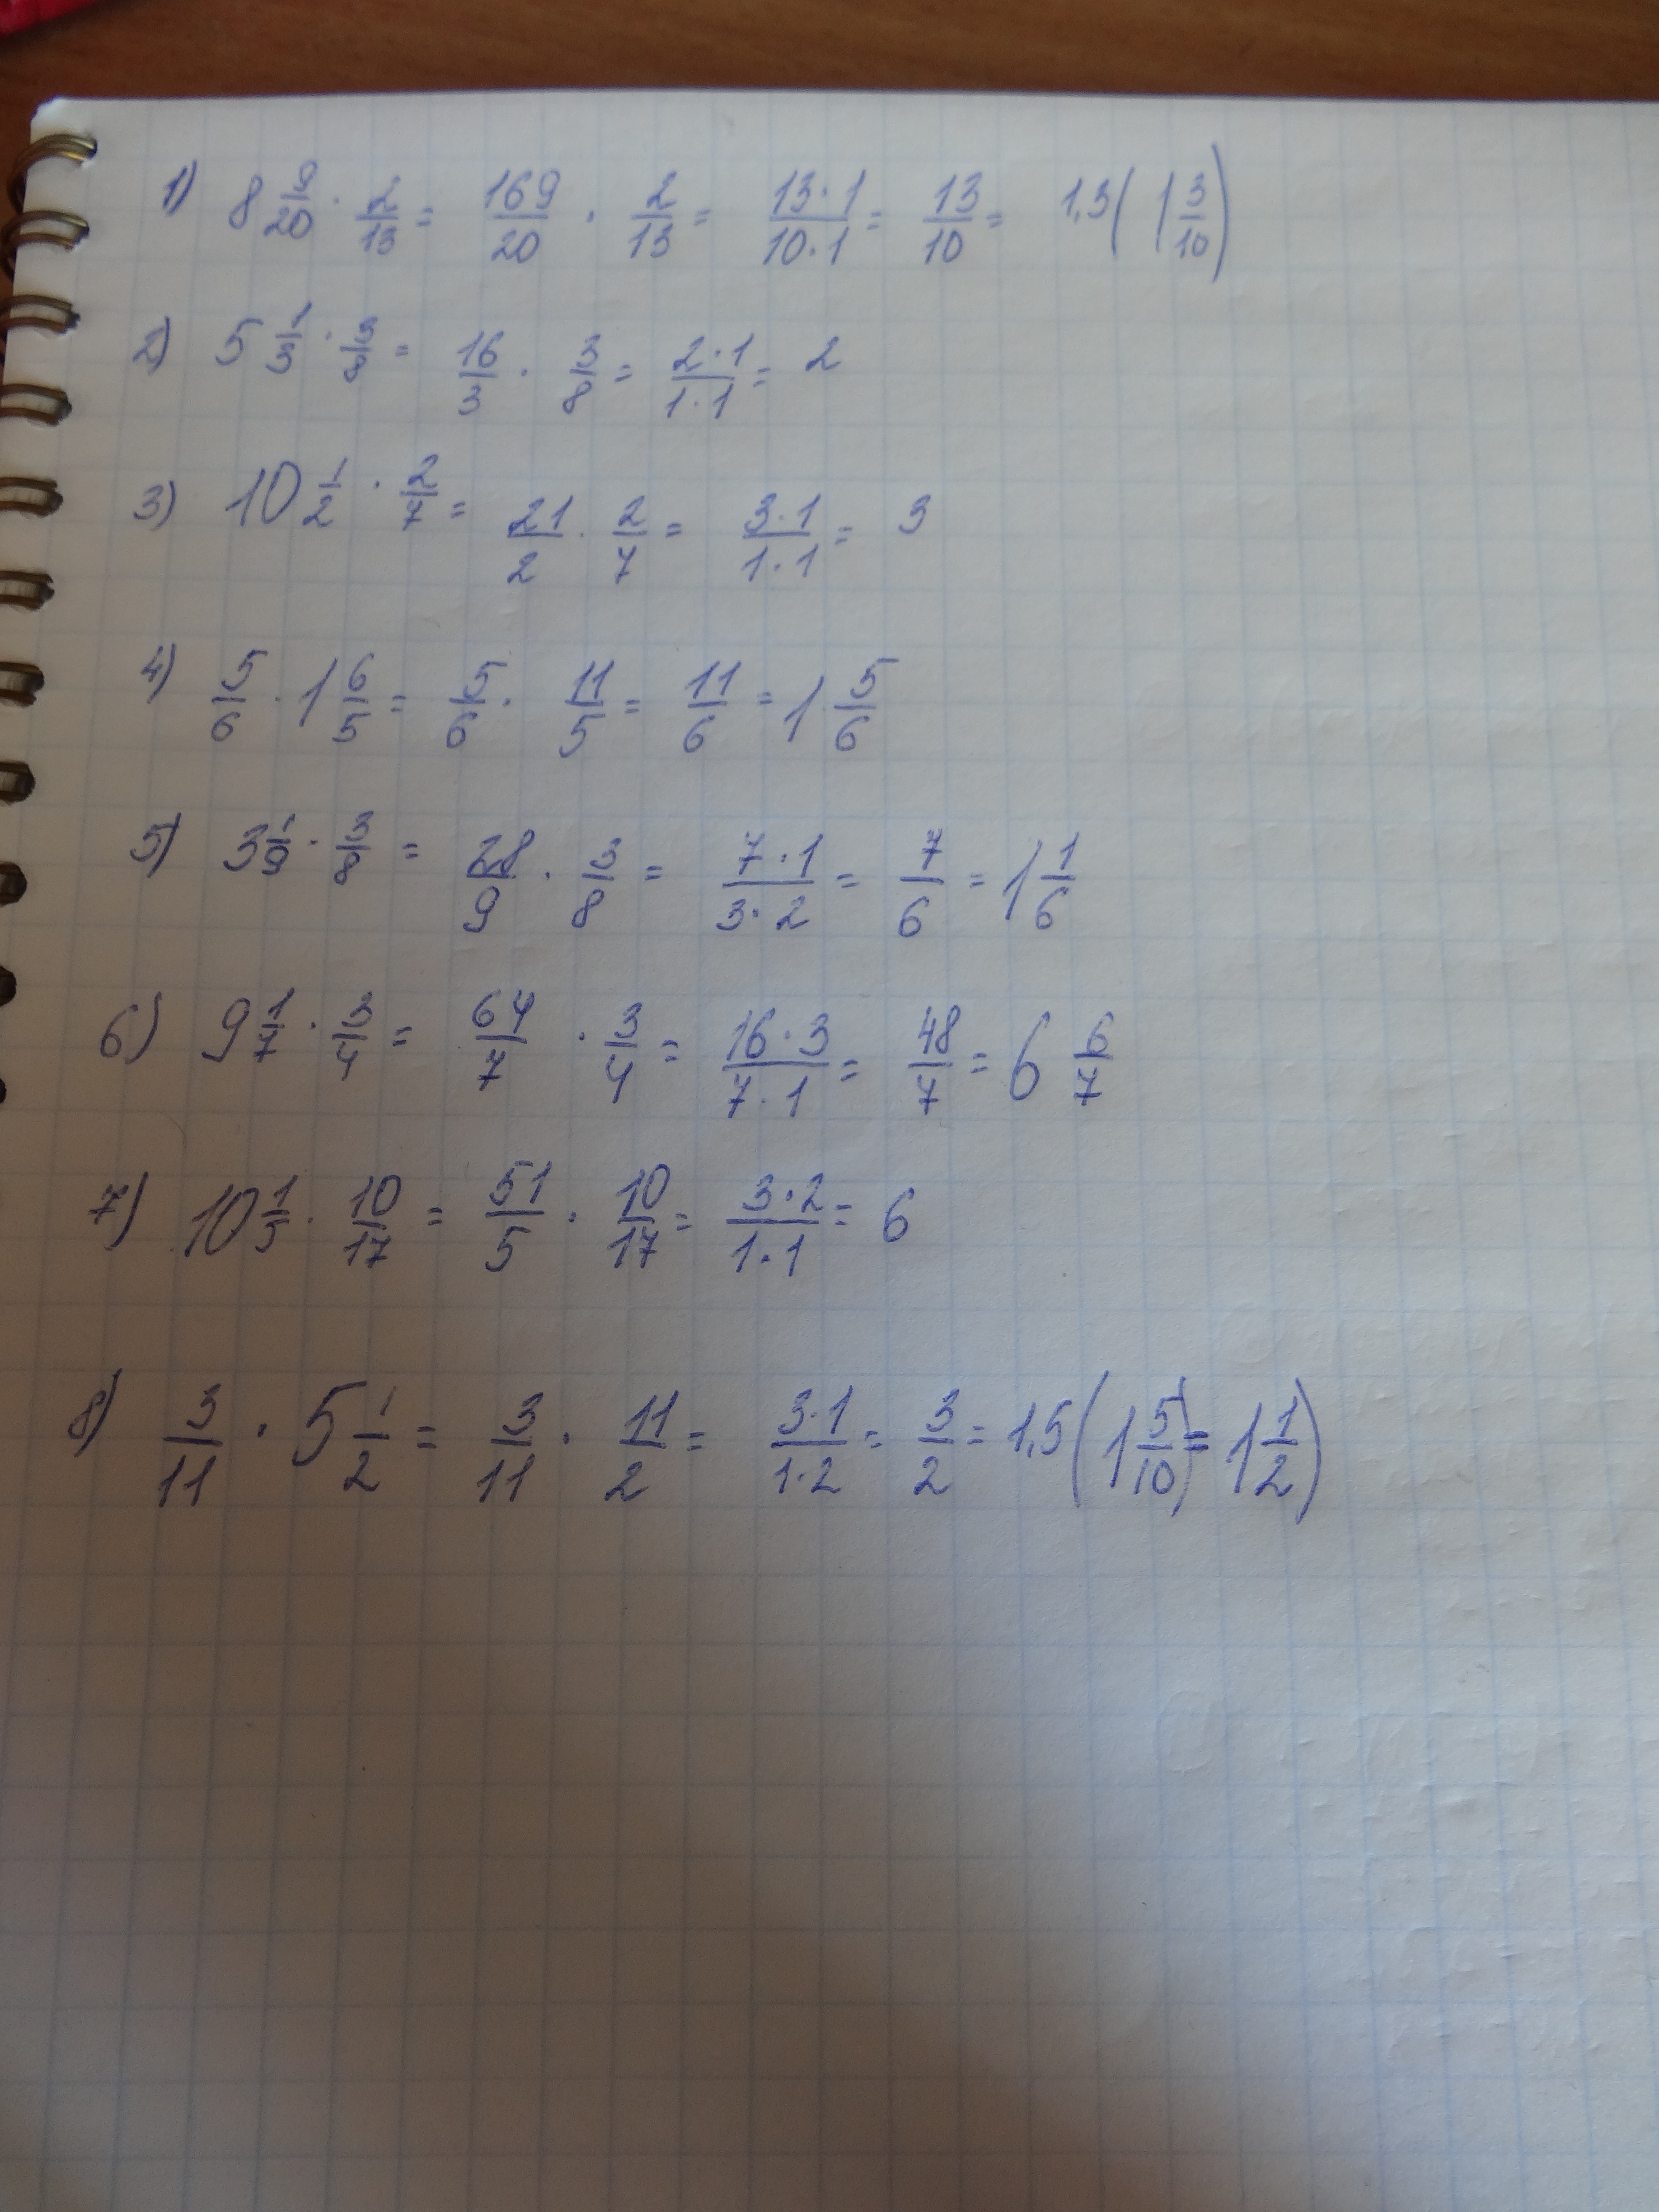 1) 8 9/20 · 2/13 = 169/20 · 2/13 = 13·1/10·1 = 13/10 = 1,3 (1 3/10)
2) 5 1/3 · 3/8 = 16/3 · 3/8 = 2·1/1·1 = 2
3) 10 1/2 · 2/7 = 21/2 · 2/7 = 3·1/1·1 = 3
4) 5/6 · 1 6/5 = 5/6 · 11/5 = 11/6 = 1 5/6
5) 3 1/9 · 3/8 = 28/9 · 3/8 = 7·1/3·2 = 7/6 = 1 1/6
6) 9 1/7 · 3/4 = 64/7 · 3/4 = 16·3/7·1 = 48/7 = 6 6/7
7) 10 1/5 · 10/17 = 51/5 · 10/17 = 3·2/1·1 = 6
8) 3/11 · 5 1/2 = 3/11 · 11/2 = 3·1/1·2 = 3/2 = 1,5 (1 5/10) = 1 1/2)